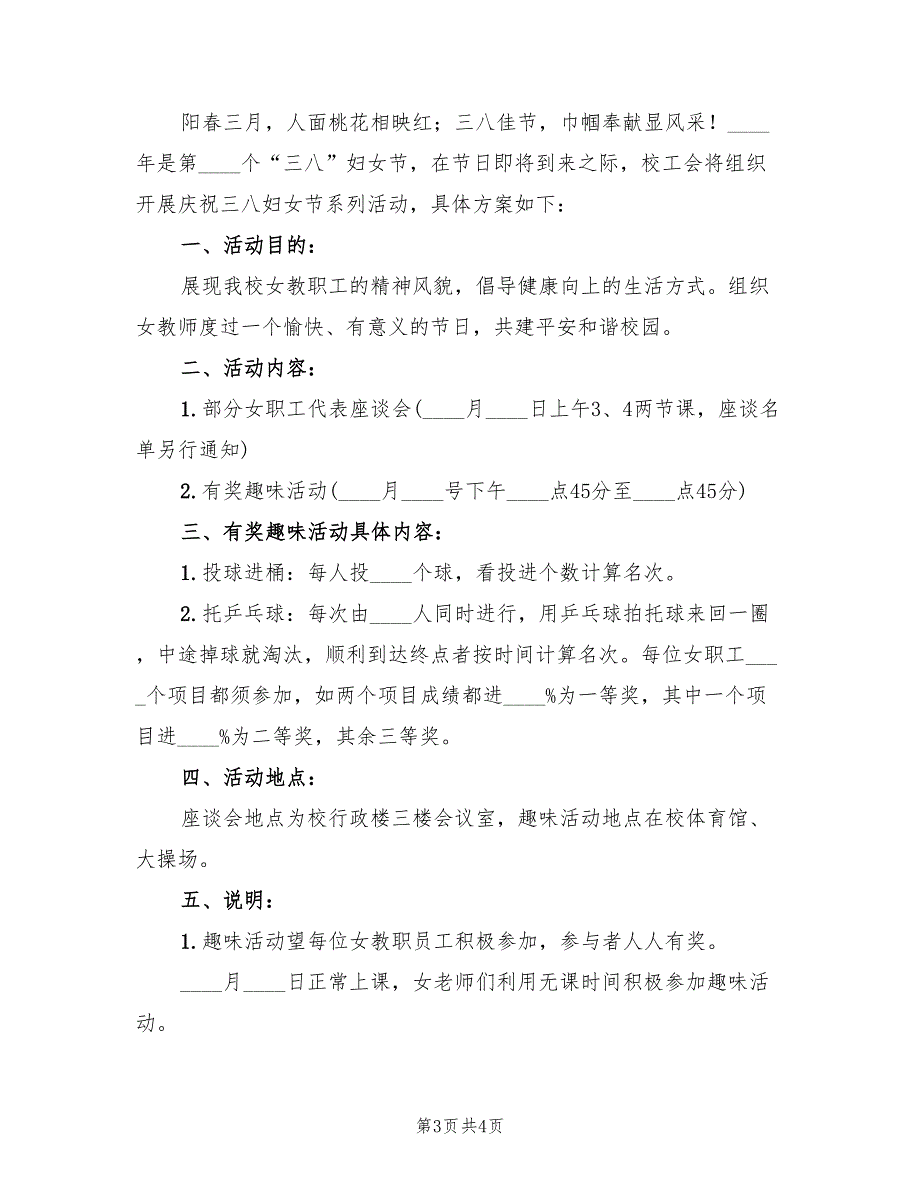 阳春三月，人面桃花相映红；三八佳节，巾帼奉献显风采！____
年是第____个“三八”妇女节，在节日即将到来之际，校工会将组织
开展庆祝三八妇女节系列活动，具体方案如下：
一、活动目的：
展现我校女教职工的精神风貌，倡导健康向上的生活方式。组织
女教师度过一个愉快、有意义的节日，共建平安和谐校园。
二、活动内容：
1.部分女职工代表座谈会(____月____日上午3、4两节课，座谈名
单另行通知)
2.有奖趣味活动(____月____号下午____点45分至____点45分)
三、有奖趣味活动具体内容：
1.投球进桶：每人投____个球，看投进个数计算名次。
2.托乒乓球：每次由____人同时进行，用乒乓球拍托球来回一圈
，中途掉球就淘汰，顺利到达终点者按时间计算名次。每位女职工___
_个项目都须参加，如两个项目成绩都进____%为一等奖，其中一个项
目进____%为二等奖，其余三等奖。
四、活动地点：
座谈会地点为校行政楼三楼会议室，趣味活动地点在校体育馆、
大操场。
五、说明：
1.趣味活动望每位女教职员工积极参加，参与者人人有奖。
____月____日正常上课，女老师们利用无课时间积极参加趣味活
动。
第3页共4页